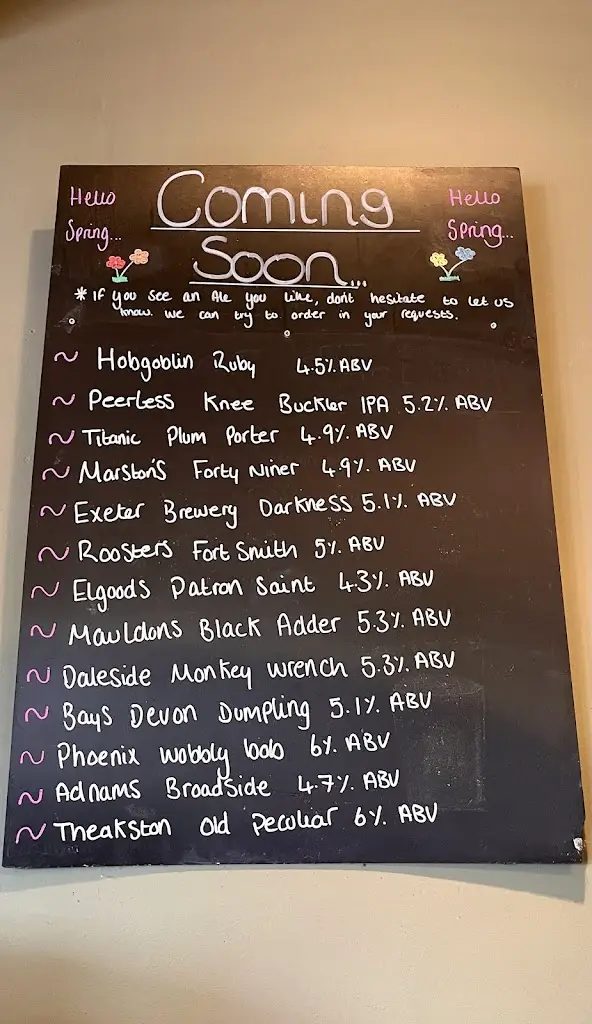 Hello Coming Hello
Spring... Spring...
Soon...
* If you see an Ale you like, dont hesitate to let us
know. we can try to order in your requests.
~ Hobgoblin Ruby 4.5% ABV
~ Peerless Knee Buckler IPA 5.2% ABV
~ Titanic Plum Porter 4.9% ABV
~ Marston's Forty Niner 4.9% ABV
~ Exeter Brewery Darkness 5.1% ABV
~ Roosters Fort Smith 5% ABV
~ Elgoods Patron Saint 4.3% ABV
~ Mauldons Black Adder 5.3% ABV
~ Daleside Monkey wrench 5.3% ABV
~ Bays Devon Dumpling 5.1% ABV
~ Phoenix wobbly bob 6% ABV
~ Adnams Broadside 4.7% ABV
~ Theakston old peculiar 6% ABV